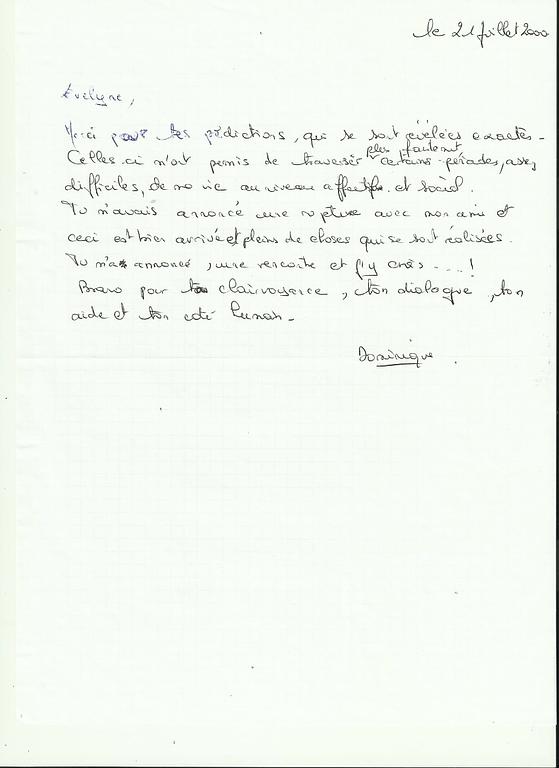 le 21 Juillet 2000
Evelyne,
Merci pour tes prédictions, qui se sont révélées exactes.
Celles ci m'ont permis de traverser plus facilement certaines périodes, assez
difficiles, de ma vie au niveau affectif et social.
Tu m'avais annoncé une rupture avec mon ami et
ceci est bien arrivé et pleins de choses qui se sont réalisées.
Tu m'as annoncé, une rencontre et j'y crois ....!
Bravo pour ta clairvoyance, ton dialogue, ton
aide et ton coté humain.
Dominique.